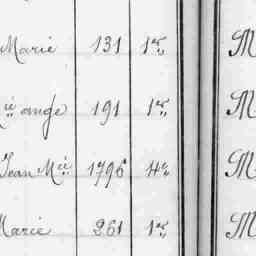 Marie 131 1er M
Mie ange 191 1er M
Jean Mie 1796 4e M
Marie 261 1er M